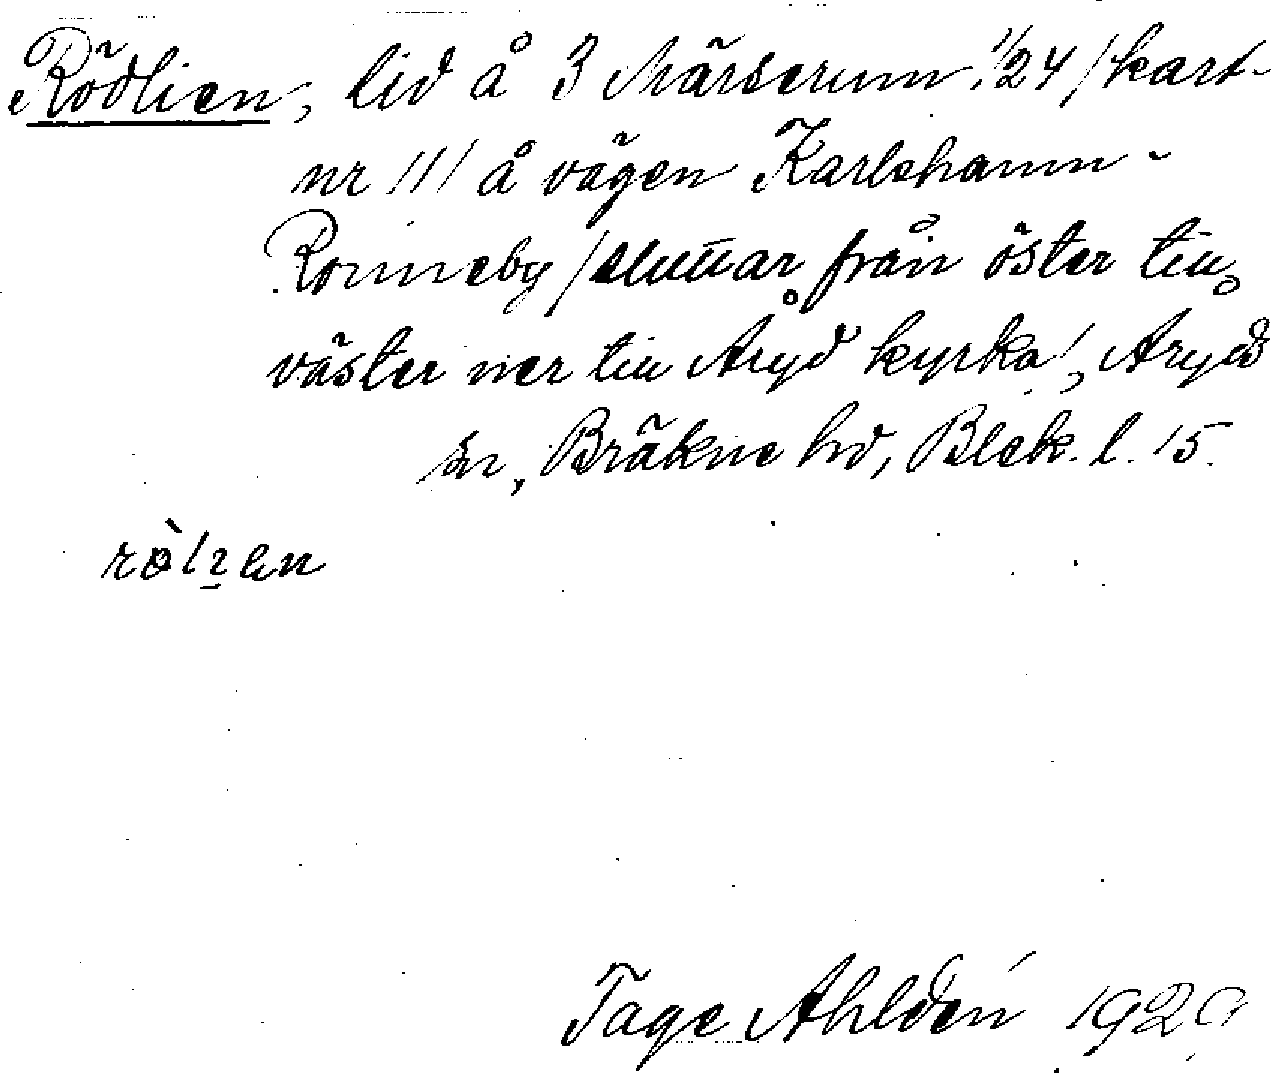 Rödlien, lid å 3 Märserum 1/24 /kart-
nr 11/ å vägen Karlshamn -
Ronneby /sluttar från öster till
väster ner till Åryd kyrka/, Åryds
sn, Bräkne hd, Blek. l. 15.
Tage Ahldén 1929